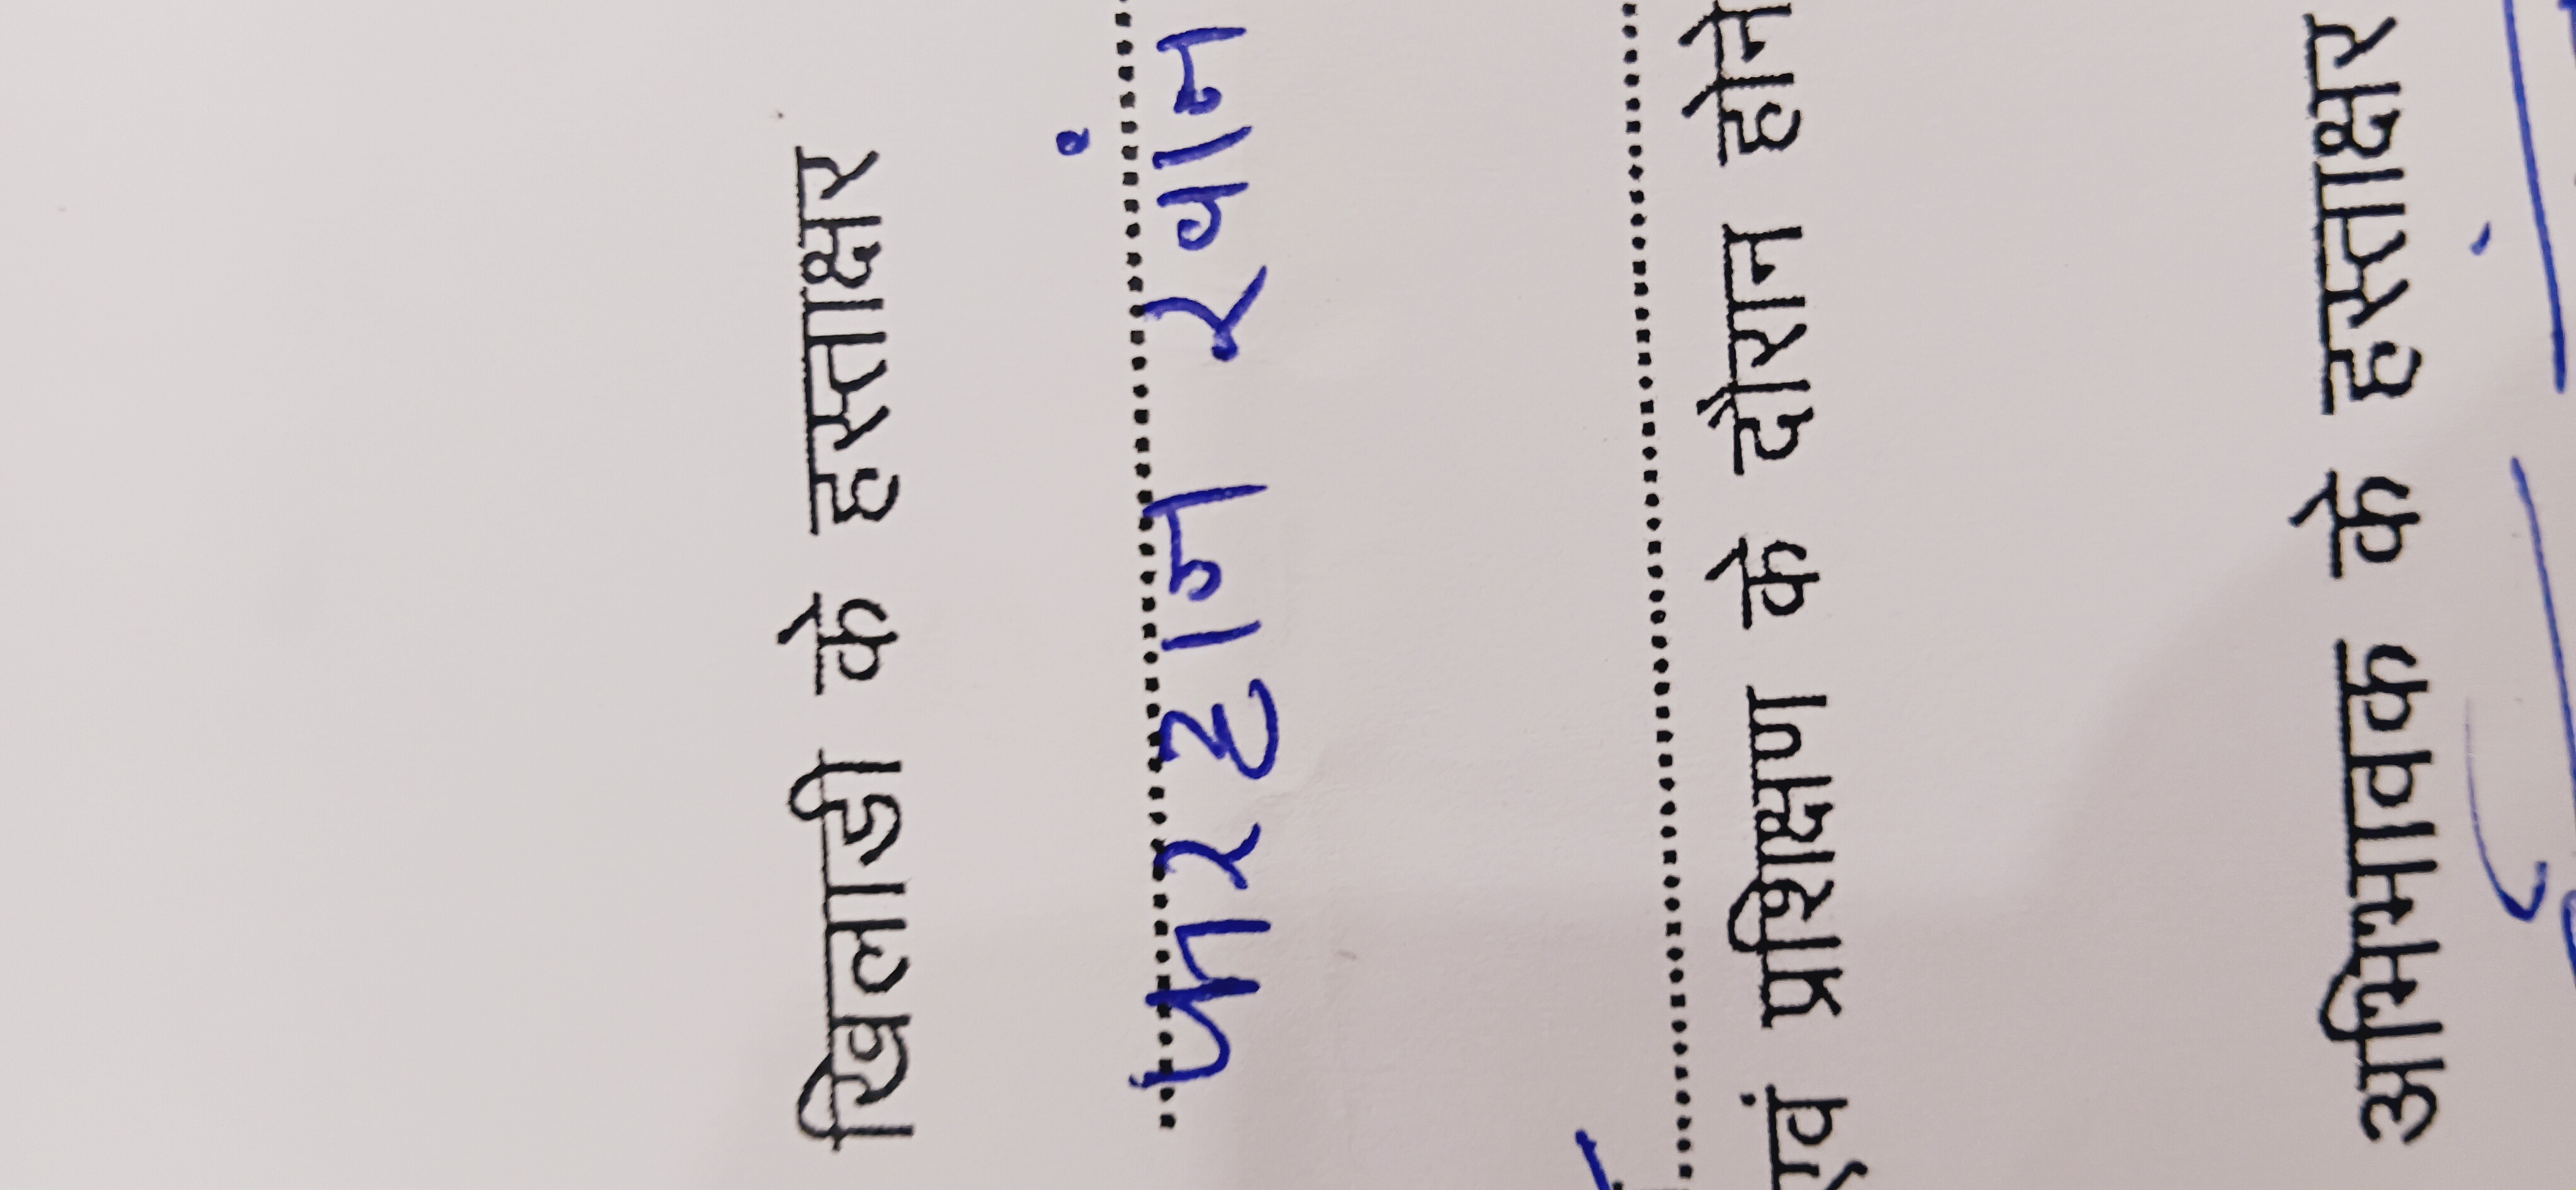 खिलाडी के हस्ताक्षर
फरहान खांन
एवं प्रशिक्षण के दौरान होने
अभिभावक के हस्ताक्षर